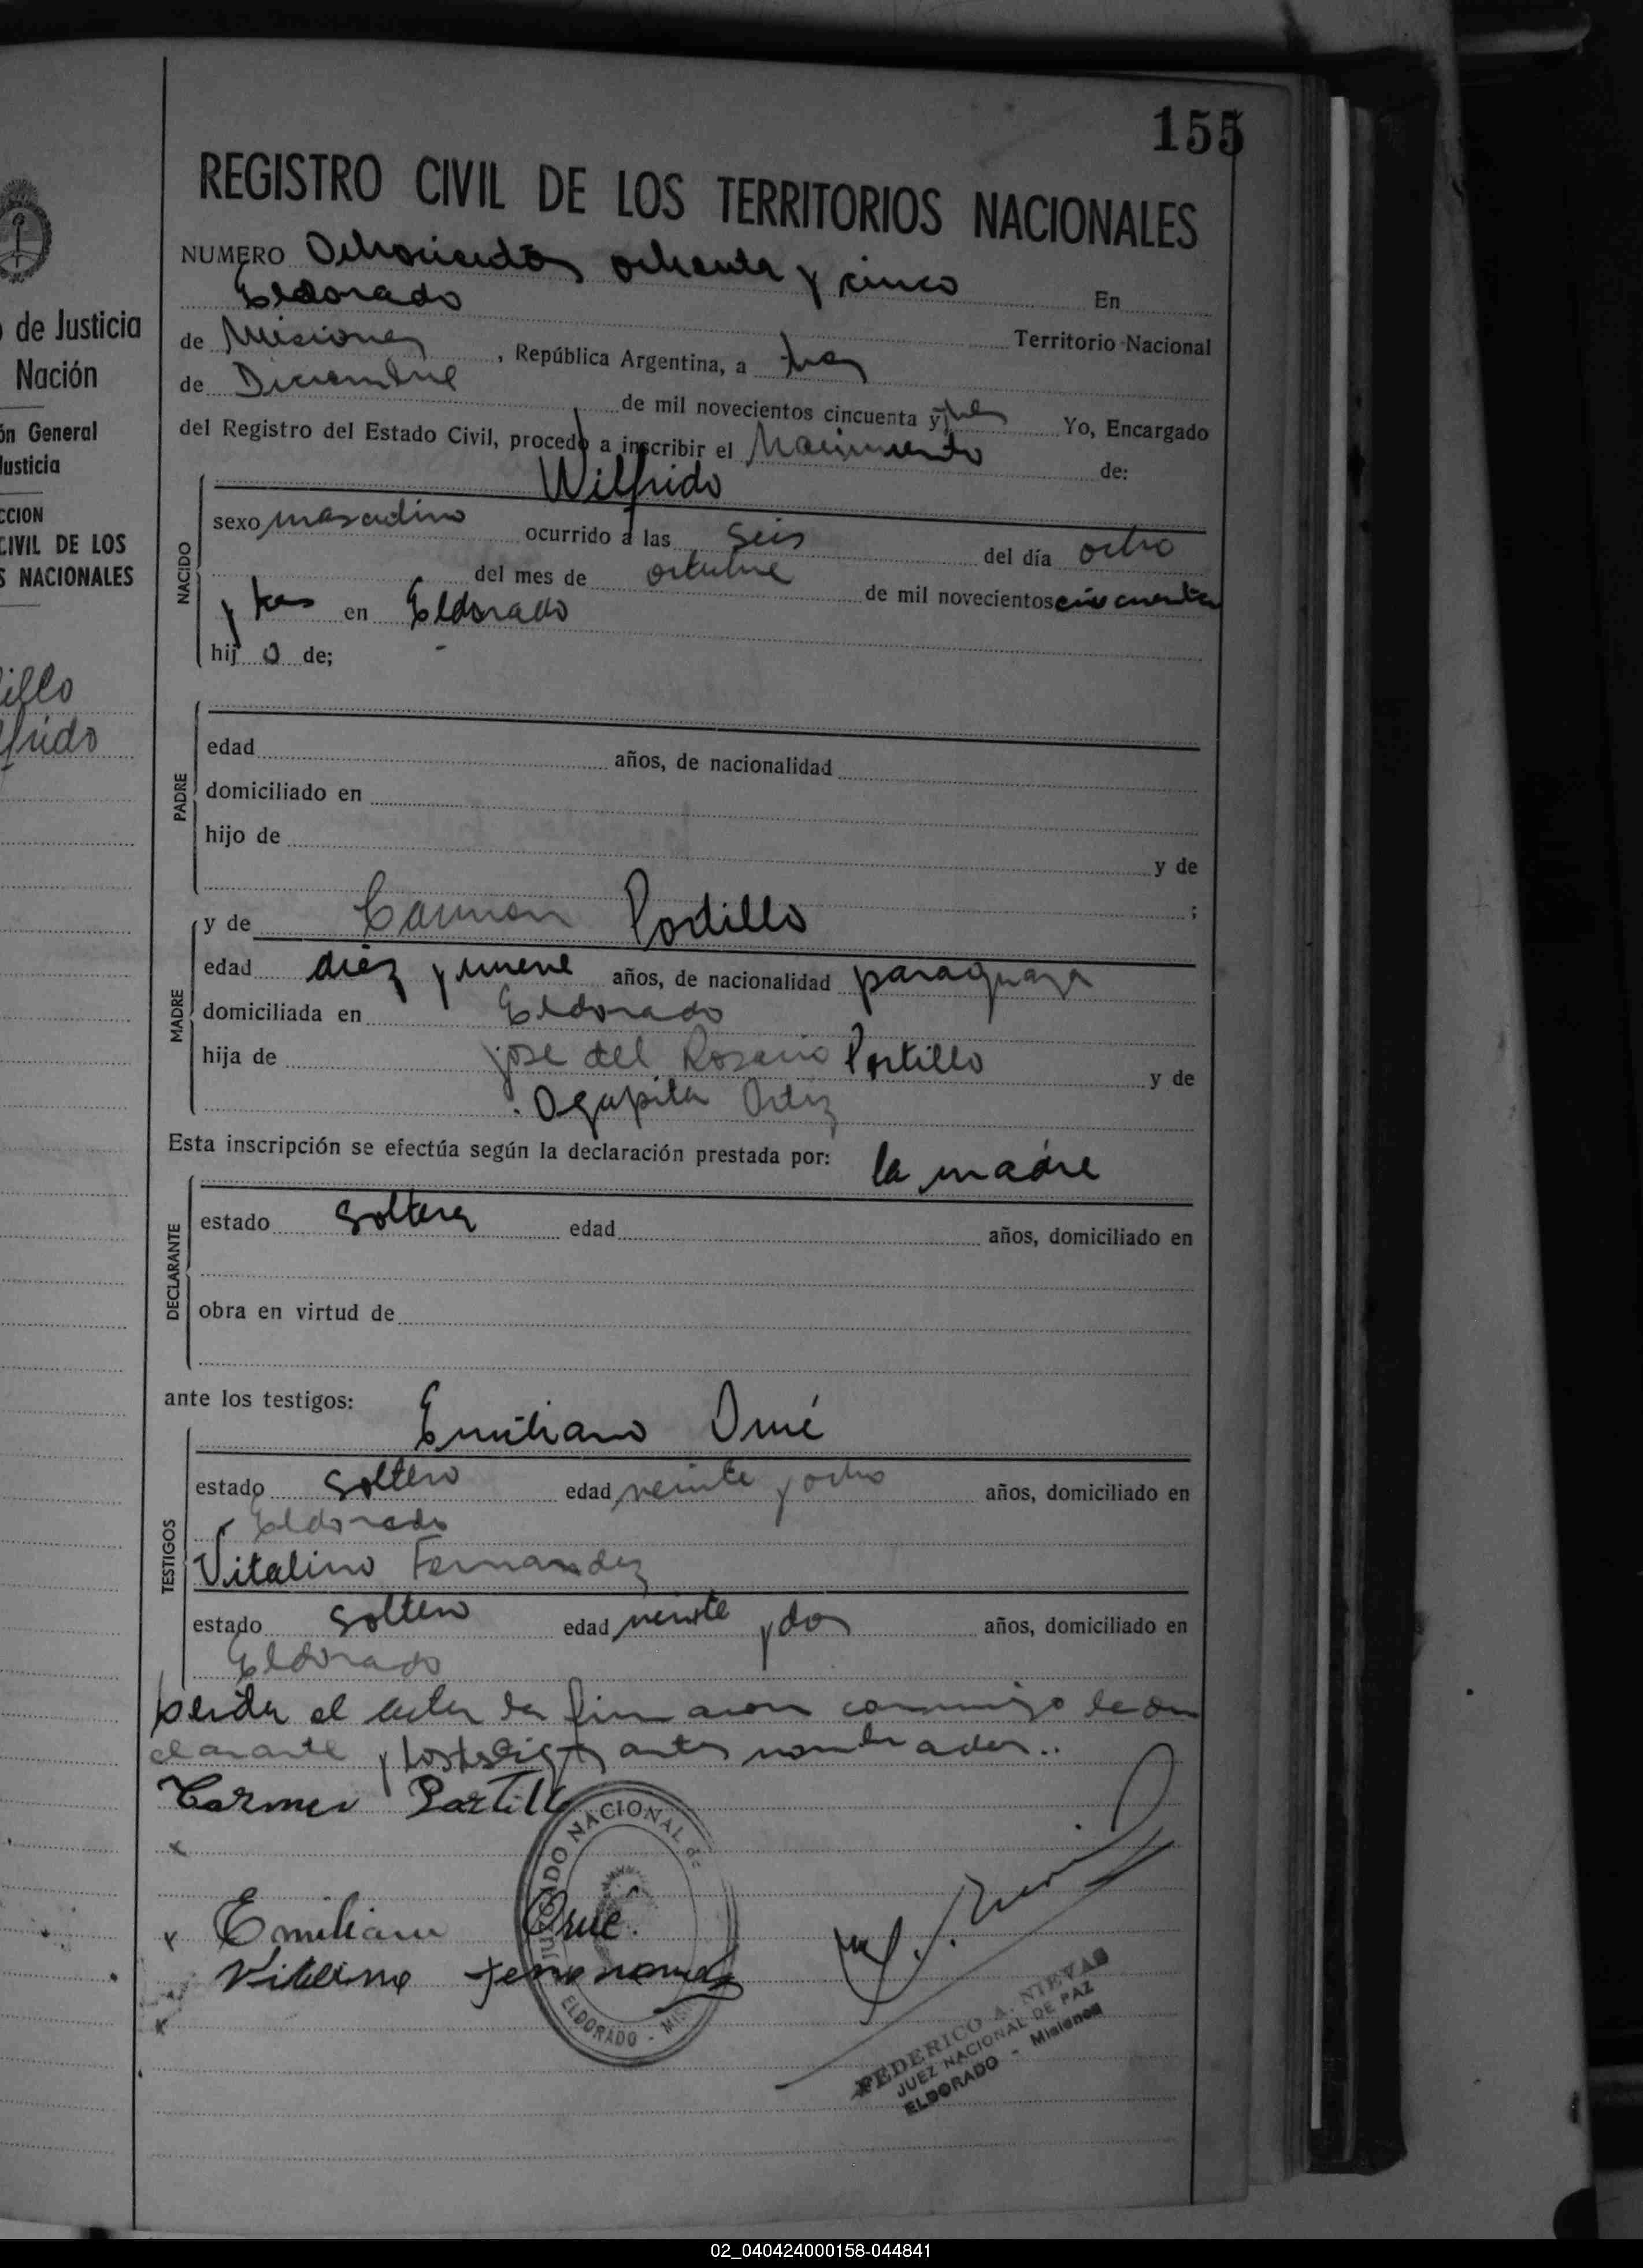 155
REGISTRO CIVIL DE LOS TERRITORIOS NACIONALES
NUMERO Ochocientos ochenta y cinco
En
Eldorado
Territorio Nacional
de Misiones, República Argentina, a tres
de Diciembre de mil novecientos cincuenta y tres Yo, Encargado
del Registro del Estado Civil, procedo a inscribir el Nacimiento de:
Wilfrido
NACIDO
sexo masculino ocurrido a las seis del día ocho
del mes de octubre de mil novecientos cincuenta
y tres en Eldorado
hij o de;
PADRE
edad años, de nacionalidad
domiciliado en
hijo de y de
;
MADRE
y de Carmen Portillo
edad diez y nueve años, de nacionalidad paraguaya
domiciliada en Eldorado
hija de jose del Rosario Portillo y de
Ogapita Ortiz
Esta inscripción se efectúa según la declaración prestada por: la madre
DECLARANTE
estado soltera edad años, domiciliado en
obra en virtud de
ante los testigos: Emiliano Orué
TESTIGOS
estado soltero edad veinte y ocho años, domiciliado en
Eldorado
Vitalino Fernandez
estado soltero edad veinte y dos años, domiciliado en
Eldorado
Leida el acta la firmaron conmigo la de
clarante y los testigos antes nombrados..
Carmen Portillo
Emiliano Orué.
Vitalino Fernandez
JUZGADO NACIONAL de
ELDORADO - MIS
FEDERICO A. NIEVAS
JUEZ NACIONAL DE PAZ
ELDORADO - Misiones
de Justicia
Nación
ón General
Justicia
CCION
CIVIL DE LOS
S NACIONALES
illo
lfrido
02_040424000158-044841